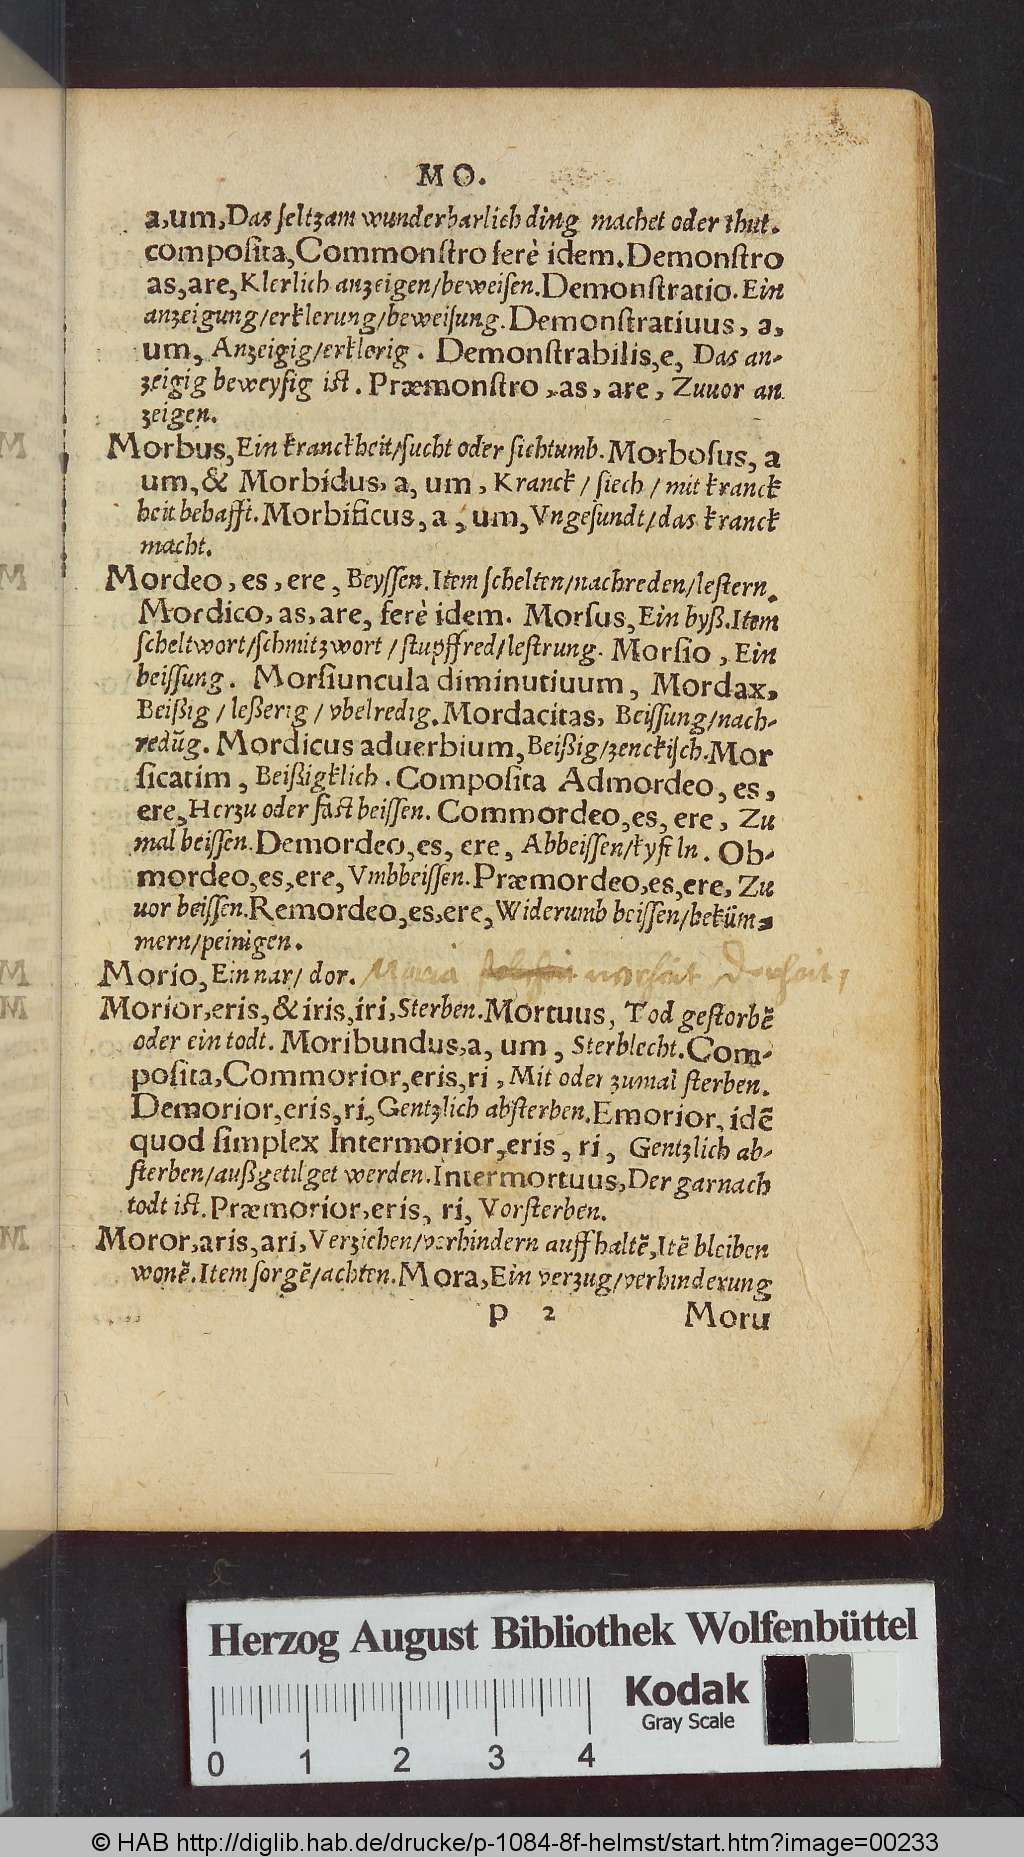 MO.
a,um,Das ſeltzam wunderbarlich ding machet oder thut.
compoſita,Commonſtro ferè idem.Demonſtro
as,are,Klerlich anzeigen/beweiſen.Demonſtratio.Ein
anzeigung/erklerung/beweiſung.Demonſtratiuus, a,
um, Anzeigig/erklerig. Demonſtrabilis,e, Das an-
zeigig beweyſig iſt. Præmonſtro,as, are, Zuuor an
zeigen.
Morbus,Ein kranckheit/ſucht oder ſichtumb.Morboſus, a
um,& Morbidus, a, um, Kranck/ ſiech / mit kranck
heit behafft.Morbificus, a, um,Vngeſundt/das kranck
macht.
Mordeo, es, ere, Beyſſen.Item ſchelten/nachreden/leſtern.
Mordico, as, are, ferè idem. Morſus,Ein byß.Item
ſcheltwort/ſchmitzwort / ſtupffred/leſtrung. Morſio, Ein
beiſſung. Morſiuncula diminutiuum, Mordax,
Beißig / leßerig / vbelredig.Mordacitas, Beiſſung/nach-
redūg. Mordicus aduerbium,Beißig/zenckiſch.Mor
ſicatim, Beißigklich. Compoſita Admordeo, es,
ere,Herzu oder faſt beiſſen. Commordeo,es, ere, Zu
mal beiſſen.Demordeo,es, ere, Abbeiſſen/kyfiln. Ob-
mordeo,es,ere,Vmbbeiſſen.Præmordeo,es,ere, Zu
uor beiſſen.Remordeo,es,ere,Widerumb beiſſen/beküm-
mern/peinigen.
Morio,Ein nar/ dor. Moria narheit Dorheit,
Morior,eris,& iris,iri,Sterben.Mortuus, Tod geſtorbē
oder ein todt. Moribundus,a, um, Sterblecht.Com-
poſita,Commorior,eris,ri, Mit oder zumal ſterben.
Demorior,eris,ri,Gentzlich abſterben.Emorior, idē
quod ſimplex Intermorior,eris, ri, Gentzlich ab-
ſterben/außgetilget werden.Intermortuus,Der gar nach
todt iſt.Præmorior,eris, ri, Vorſterben.
Moror,aris,ari,Verziehen/verhindern auffhaltē,Itē bleiben
wonē.Item ſorgē/achten.Mora,Ein verzug/verhinderung
p 2 Moru
Herzog August Bibliothek Wolfenbüttel
Kodak
Gray Scale
0 1 2 3 4
© HAB http://diglib.hab.de/drucke/p-1084-8f-helmst/start.htm?image=00233